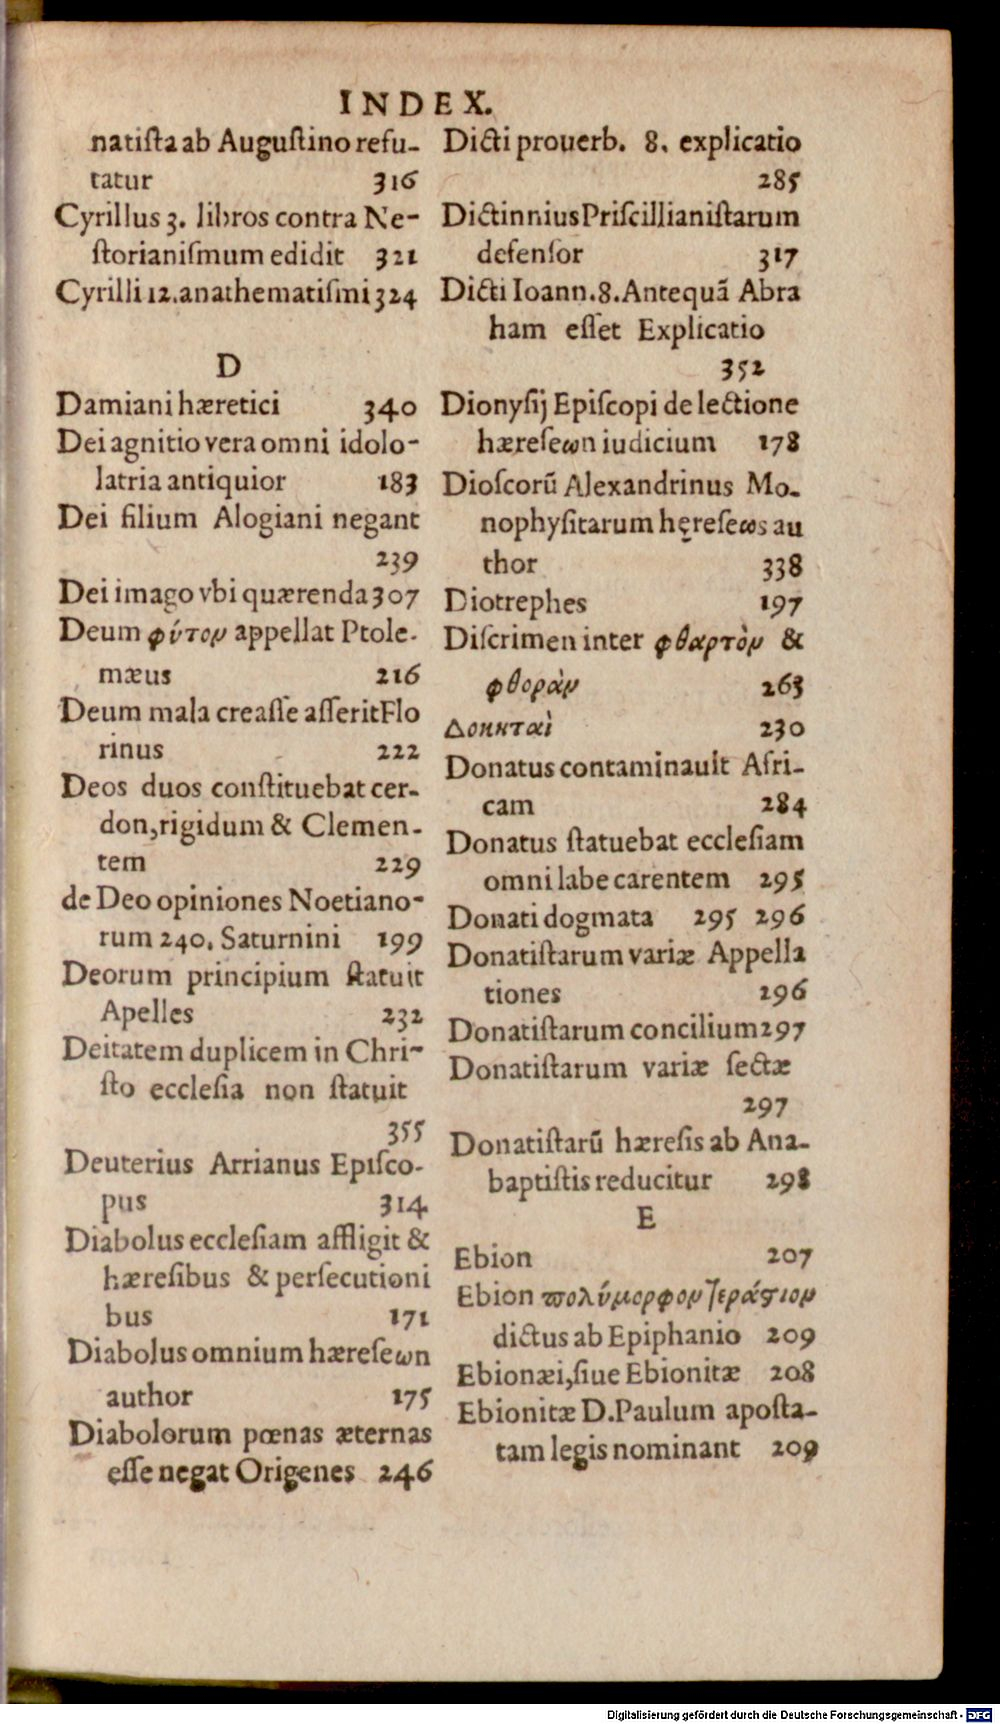 INDEX.
natiſta ab Auguſtino refu-
tatur 316
Cyrillus 3. libros contra Ne-
ſtorianiſmum edidit 321
Cyrilli 12. anathematiſmi 324
D
Damiani hæretici 340
Dei agnitio vera omni idolo-
latria antiquior 183
Dei filium Alogiani negant
239
Dei imago vbi quærenda 307
Deum φύτον appellat Ptole-
mæus 216
Deum mala creaſſe aſſerit Flo
rinus 222
Deos duos conſtituebat cer-
don, rigidum & Clemen-
tem 229
de Deo opiniones Noetiano-
rum 240. Saturnini 199
Deorum principium ſtatuit
Apelles 232
Deitatem duplicem in Chri-
ſto eccleſia non ſtatuit
355
Deuterius Arrianus Epiſco-
pus 314
Diabolus eccleſiam affligit &
hæreſibus & perſecutioni
bus 171
Diabolus omnium hæreſeωn
author 175
Diabolorum pœnas æternas
eſſe negat Origenes 246
Dicti prouerb. 8. explicatio
285
Dictinnius Priſcillianiſtarum
defenſor 317
Dicti Ioann. 8. Antequã Abra
ham eſſet Explicatio
352
Dionyſij Epiſcopi de lectione
hæreſeωn iudicium 178
Dioſcorũ Alexandrinus Mo-
nophyſitarum hęreſeωs au
thor 338
Diotrephes 197
Diſcrimen inter φθαρτὸν &
φθορὰν 263
Δοκηταὶ 230
Donatus contaminauit Afri-
cam 284
Donatus ſtatuebat eccleſiam
omni labe carentem 295
Donati dogmata 295 296
Donatiſtarum variæ Appella
tiones 296
Donatiſtarum concilium 297
Donatiſtarum variæ ſectæ
297
Donatiſtarũ hæreſis ab Ana-
baptiſtis reducitur 298
E
Ebion 207
Ebion πολύμορφον τεράςιον
dictus ab Epiphanio 209
Ebionæi, ſiue Ebionitæ 208
Ebionitæ D. Paulum apoſta-
tam legis nominant 209
Digitalisierung gefördert durch die Deutsche Forschungsgemeinschaft - DFG